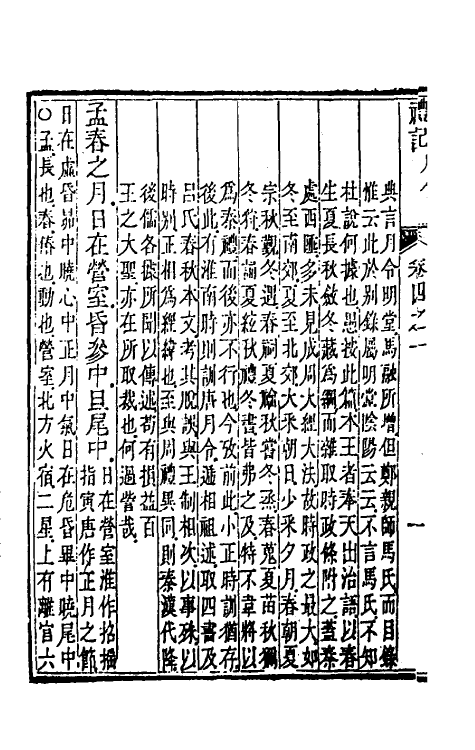 禮記月令 卷四之一 一
典言月令明堂馬融所增但鄭親師馬氏而目錄
惟云此於別錄屬明堂陰陽云云不言馬氏不知
杜說何據也愚按此篇本王者奉天出治語以春
生夏長秋斂冬藏爲綱而雜取時政條附之蓋秦
處西陲多未見成周大經大法故時政之最大如
冬至南郊夏至北郊大采朝日少采夕月春朝夏
宗秋覲冬遇春祠夏禴秋嘗冬烝春蒐夏苗秋獮
冬狩春誦夏絃秋禮冬書皆弗之及特不韋將以
爲秦禮而後亦不行也今攷前此小正時訓猶存
後此有淮南時則訓唐月令遞相祖述取四書及
呂氏春秋本文考其脫誤與王制相次以事殊以
時別正相爲經緯也至與周禮異同則秦漢代隆
後儒各據所聞以傳述苟有損益百
王之大聖亦在所取裁也何過訾哉
孟春之月日在營室昏參中旦尾中
日在營室淮作招搖
指寅唐作正月之節
日在虛昏昴中曉心中正月中氣日在危昏畢中曉尾中
○孟長也春偆也動也營室北方火宿二星上有離宮六